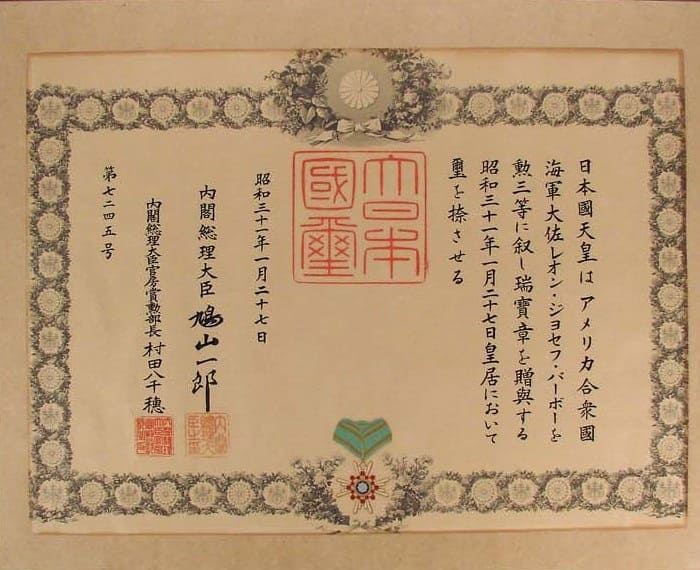 日本國天皇はアメリカ合衆國
海軍大佐レオン・ジョセフ・バーボーを
勲三等に叙し瑞寶章を贈與する
昭和三十一年一月二十七日皇居において
璽を捺させる
大日本國璽
昭和三十一年一月二十七日
内閣総理大臣 鳩山一郎
内閣総理大臣官房賞勲部長 村田八千穂
第七二四五号